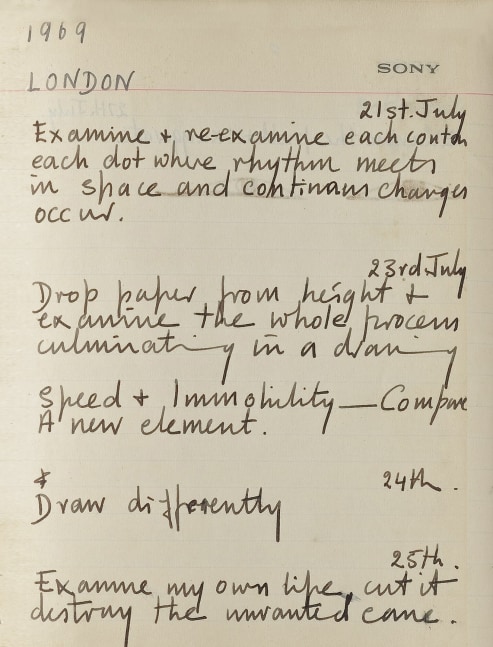 1969
SONY
LONDON
21st. July
Examine + re-examine each contou
each dot where rhythm meets
in space and continous changes
occur.
23rd July
Drop paper from height +
examine the whole process
culminating in a drawing
Speed + Immobility — Compare
A new element.
24th.
Draw differently
25th.
Examine my own life, cut it
destroy the unwanted cane.